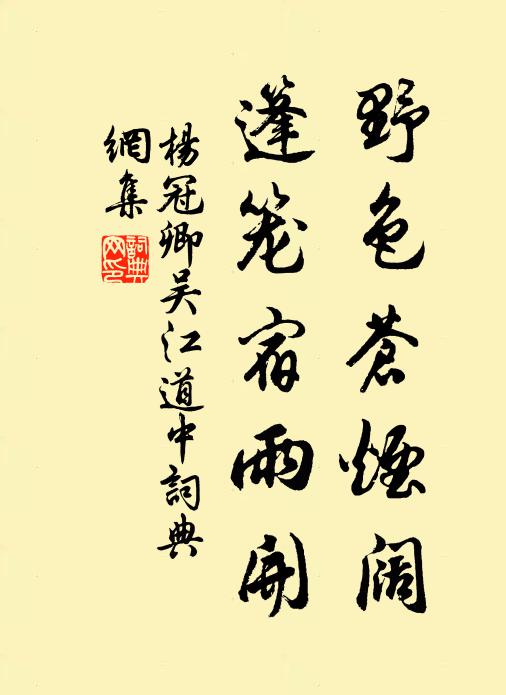 野色蒼煙闊
蓬笼宿雨開
楊冠卿吴江道中詞典
網集
詞典
网印